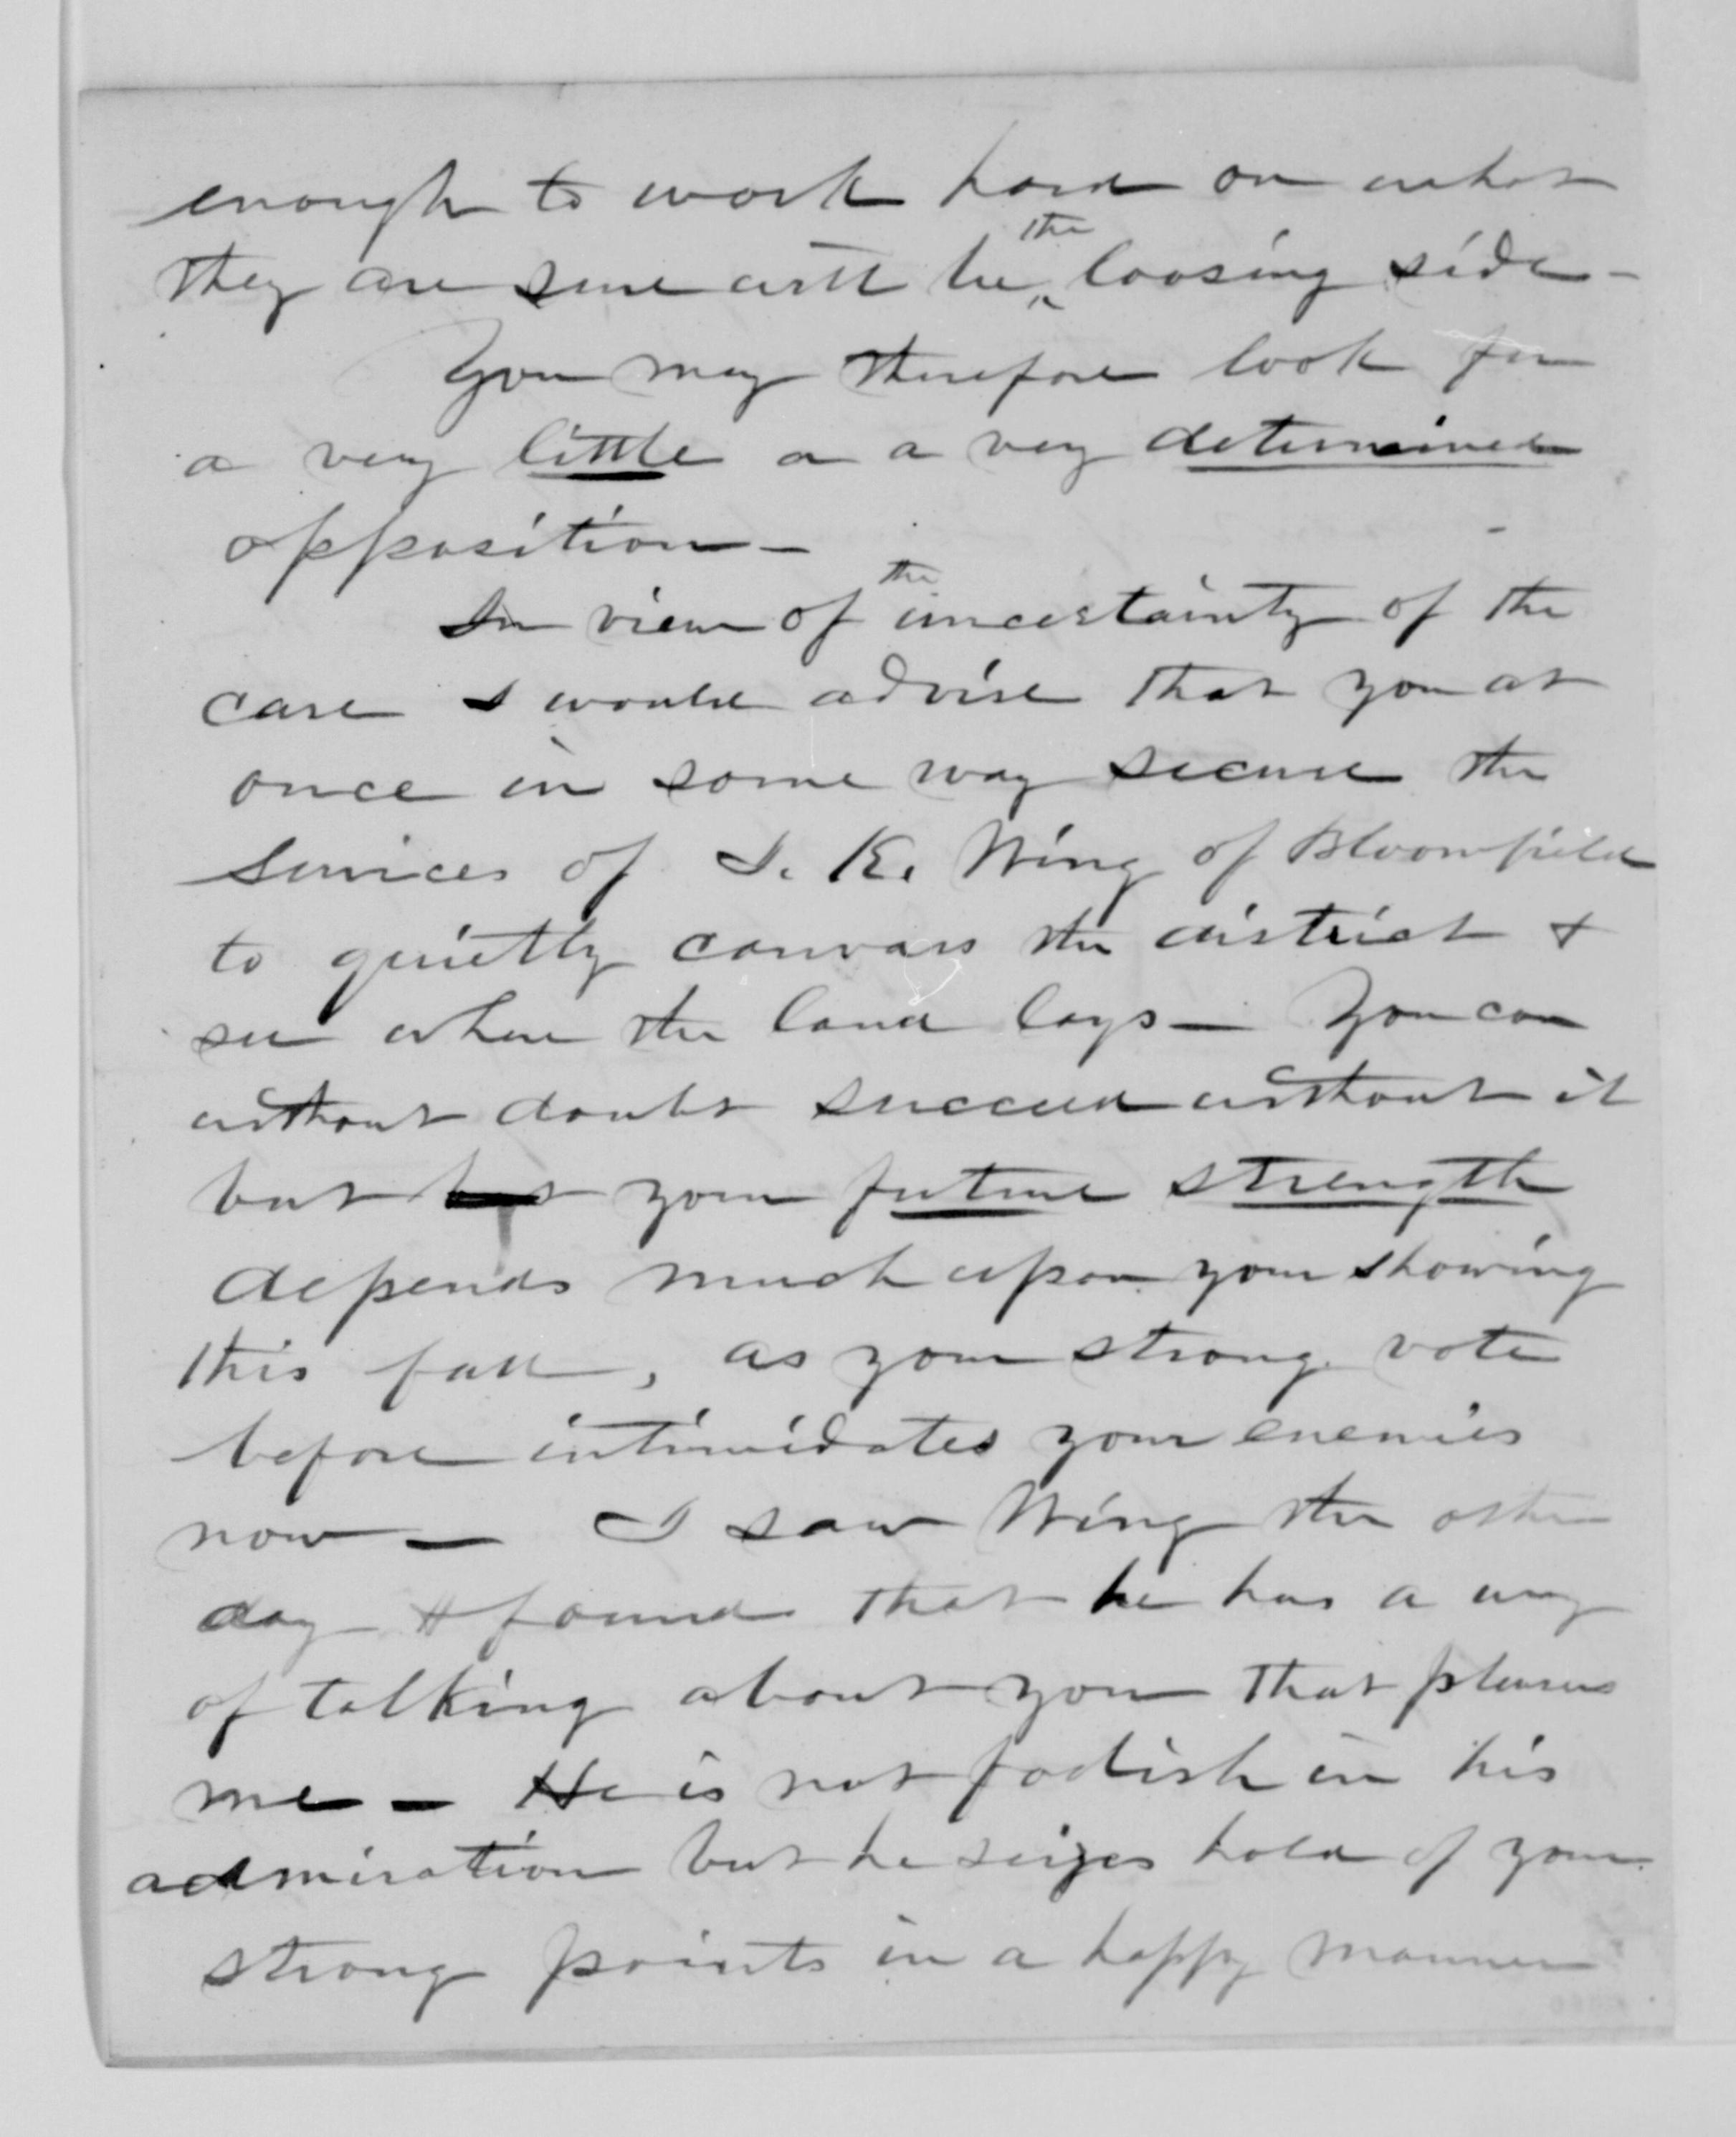 enough to work hard on what
they are sure will be the loosing side -
You may therefore look for
a very little or a very determined
opposition -
In view of the uncertainty of the
case I would advise that you at
once in some way secure the
services of J. K. Wing of Bloomfield
to quietly canvass the district &
see where the land lays - You can
without doubt succeed without it
but your future strength
depends much upon your showing
this fall, as your strong vote
before intimidates your enemies
now - I saw Wing the other
day & found that he has a way
of talking about you that pleases
me - He is not foolish in his
admiration but he seizes hold of your
strong points in a happy manner